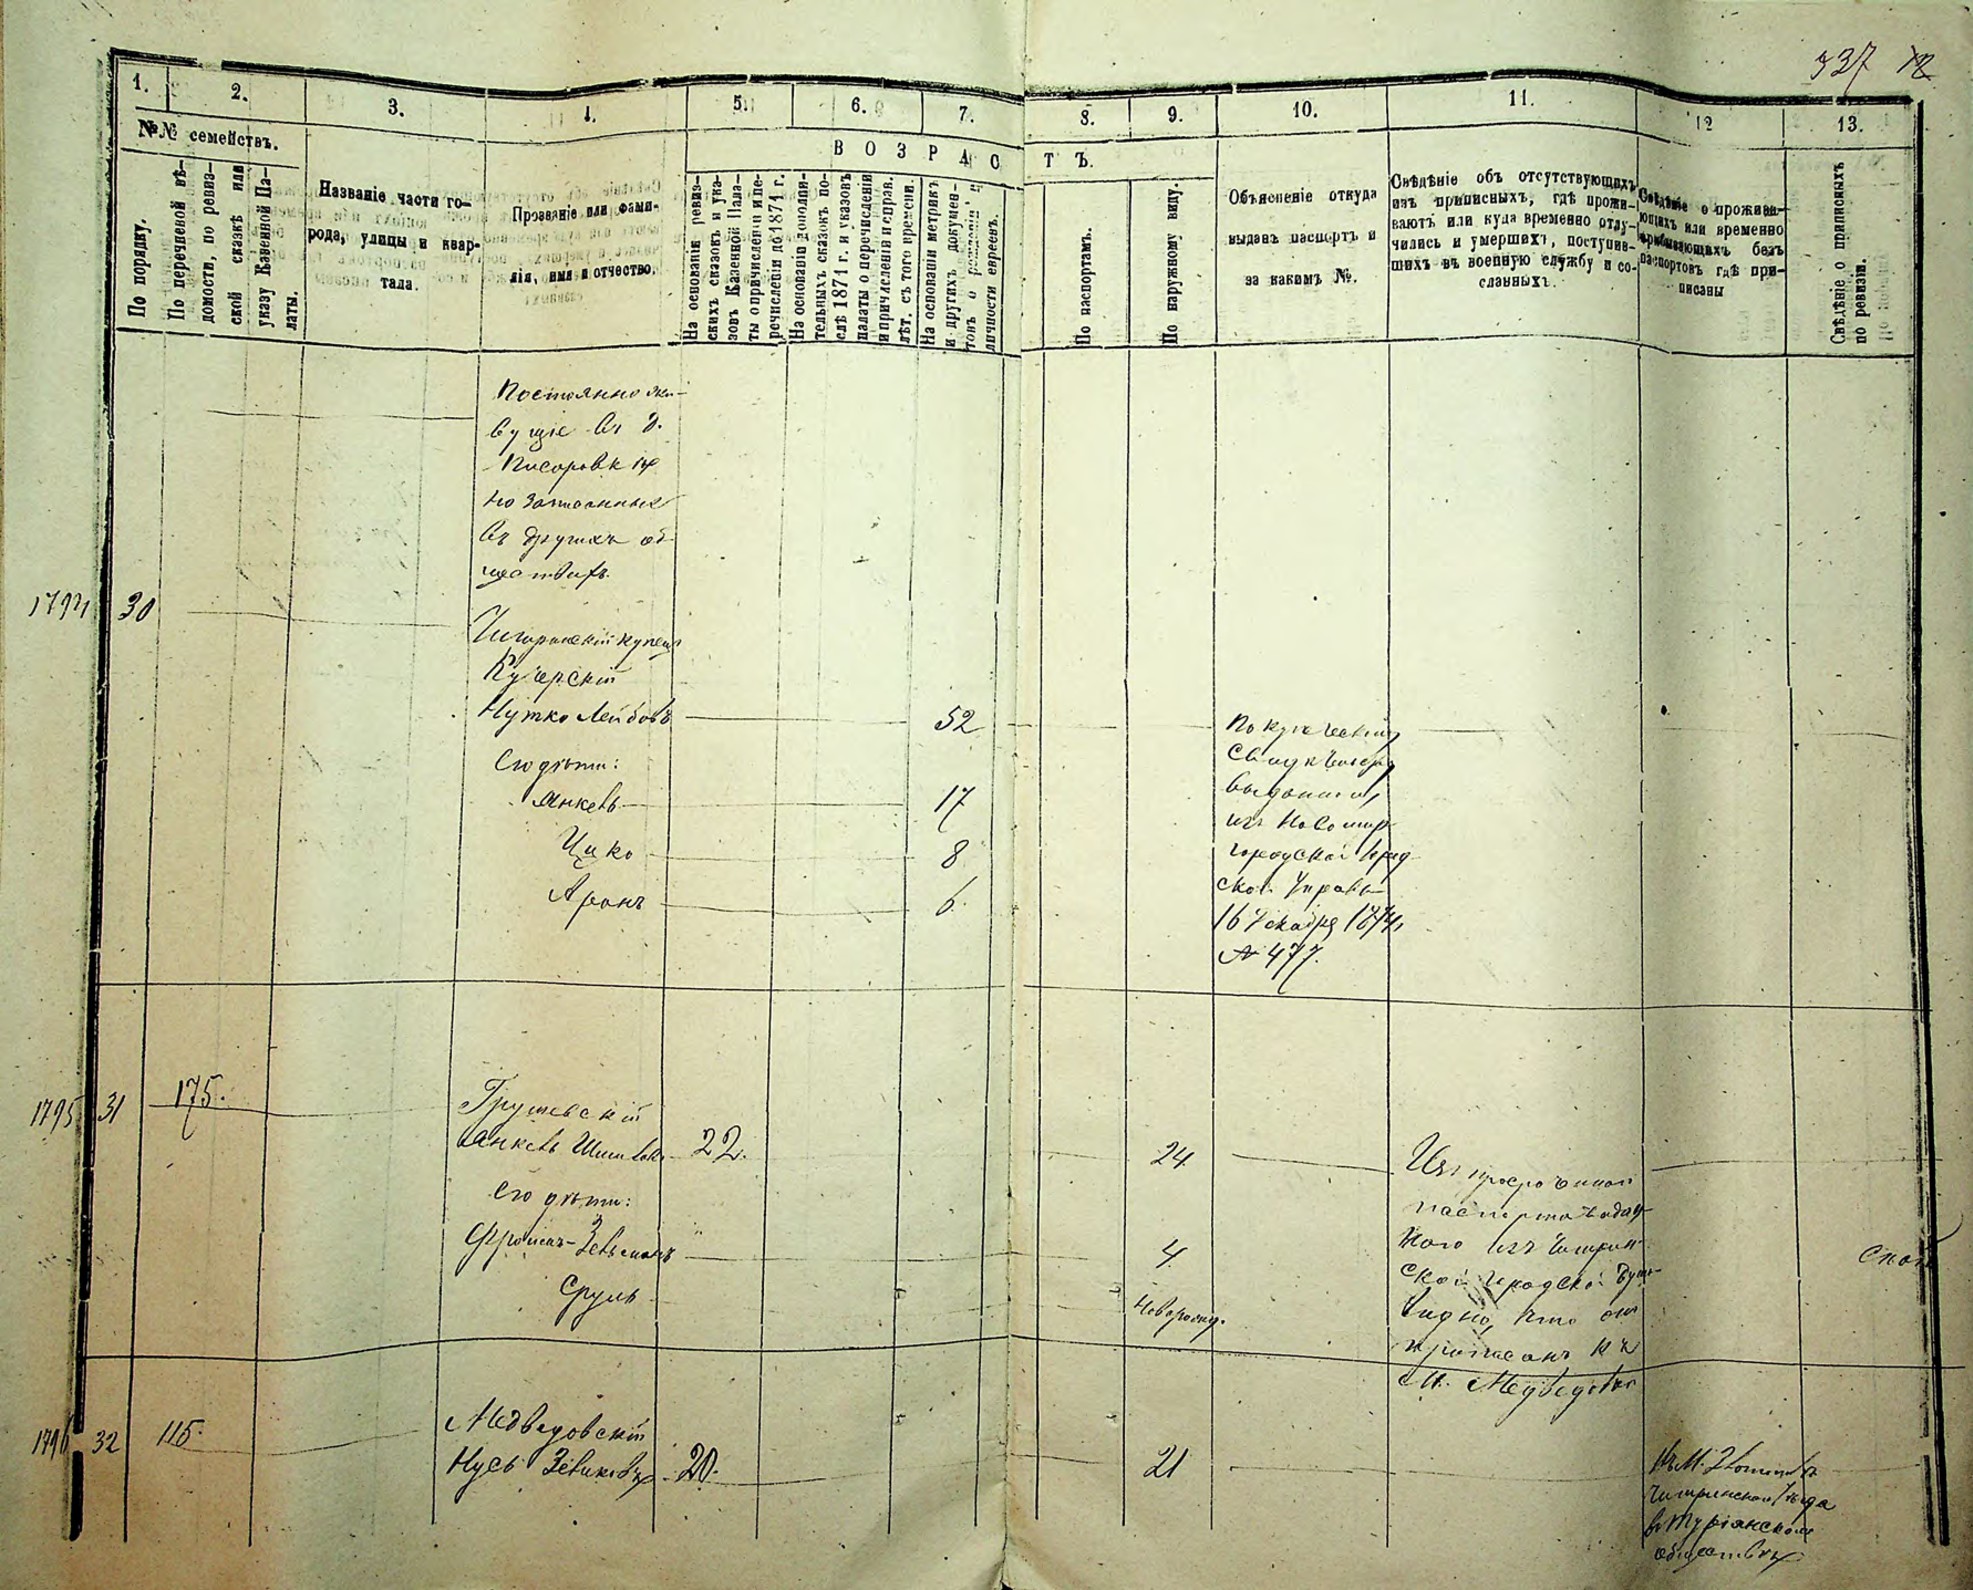 337 12
1.
2.
3.
4.
5.
6.
7.
8.
9.
10.
11.
12
13.
№№ семействъ.
По порядку.
По перечневой вѣ-
домости, по ревиз-
ской сказкѣ или
указу Казенной Па-
латы.
Названіе части го-
рода, улицы и квар-
тала.
Прозваніе или фами-
лія, имя и отчество.
ВОЗРАСТЪ.
На основаніи ревиз-
скихъ сказокъ и ука-
зовъ Казенной Пала-
ты о причисленіи и пе-
речисленіи до 1871 г.
На основаніи дополни-
тельныхъ сказокъ по-
слѣ 1871 г. и указовъ
палаты о перечисленіи
и причисленіи и справ.
лѣт. съ того времени.
На основаніи метрикъ
и другихъ докумен-
товъ о рожденіи и
личности евреевъ.
По паспортамъ.
По наружному виду.
Объясненіе откуда
выданъ паспортъ и
за какимъ №.
Свѣдѣніе объ отсутствующихъ
изъ приписныхъ, гдѣ прожи-
ваютъ или куда временно отлу-
чились и умершихъ, поступив-
шихъ въ военную службу и со-
сланныхъ.
Свѣдѣніе о прожива-
ющихъ или временно
пребывающихъ безъ
паспортовъ гдѣ при-
писаны
Свѣдѣніе о приписныхъ
по ревизіи.
Постоянно жи-
вущіе въ д.
но записанные
въ другихъ об-
ществахъ.
1794 30
Чигиринскій купецъ
Кучерскій
Нутко Лейбовъ 52
Его дѣти:
Янкевъ 17
Цико 8
Аронъ 6.
По купеческому
свидѣтельству
выданному
изъ Новомир-
городской Город-
ской Управы
16 Декабря 1874,
№ 477.
1795 31 175.
Грушевскій
Янкевъ 22. 24
Его дѣти:
4
Сруль Новорожд.
Изъ просроченнаго
паспорта выдан-
наго изъ Чигирин-
ской Городской Думы
видно, что онъ
приписанъ къ
м. Медведовкѣ
1796 32 115.
Медведовскій
Нусь 20. 21
Къ М.
Чигиринскаго Уѣзда
въ
обществѣ